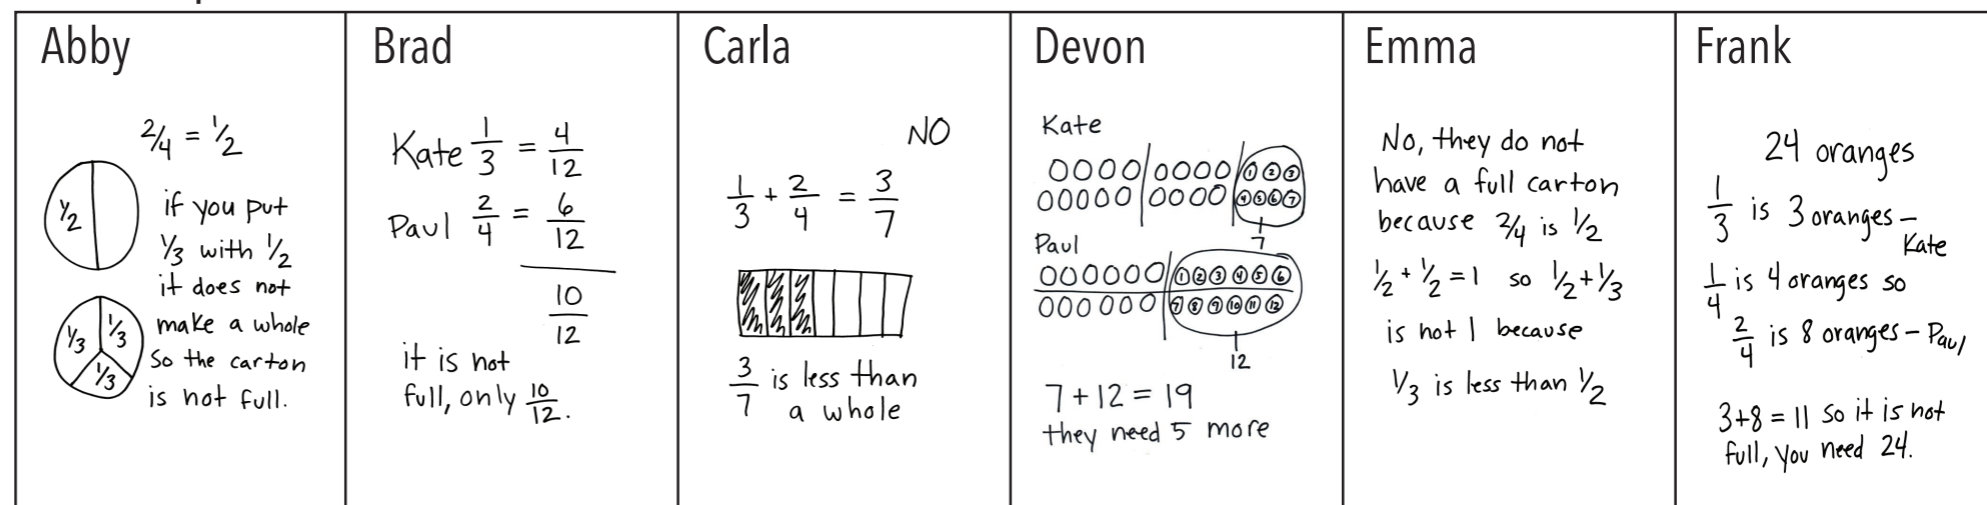 Abby
2/4 = 1/2
1/2
if you put
1/3 with 1/2
it does not
make a whole
so the carton
is not full.
1/3 1/3
1/3
Brad
Kate 1/3 = 4/12
Paul 2/4 = 6/12
10/12
it is not
full, only 10/12.
Carla
NO
1/3 + 2/4 = 3/7
3/7 is less than
a whole
Devon
Kate
1 2 3
4 5 6 7
7
Paul
1 2 3 4 5 6
7 8 9 10 11 12
12
7 + 12 = 19
they need 5 more
Emma
No, they do not
have a full carton
because 2/4 is 1/2
1/2 + 1/2 = 1 so 1/2 + 1/3
is not 1 because
1/3 is less than 1/2
Frank
24 oranges
1/3 is 3 oranges –
Kate
1/4 is 4 oranges so
2/4 is 8 oranges – Paul
3+8 = 11 so it is not
full, you need 24.